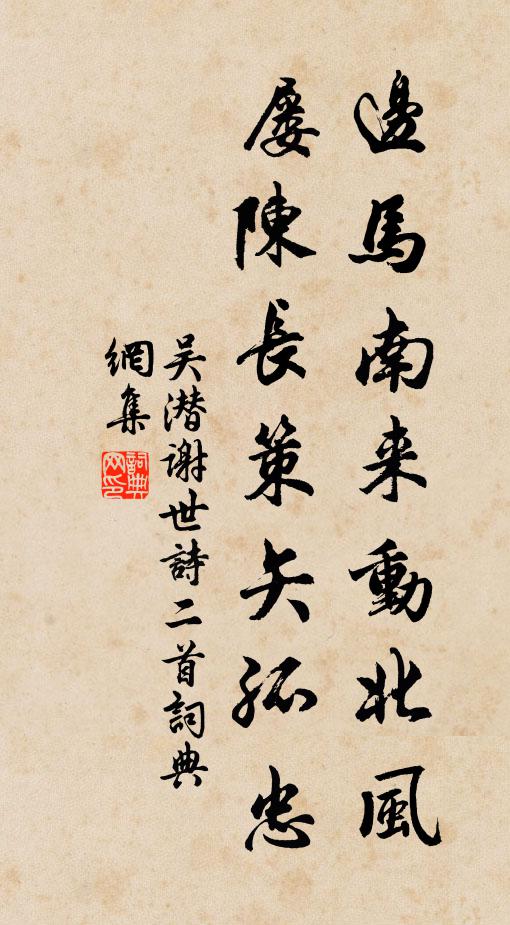 邊馬南来動北風
屡陳長策矢孤忠
吴潜谢世詩二首詞典
網集
詞典
网印